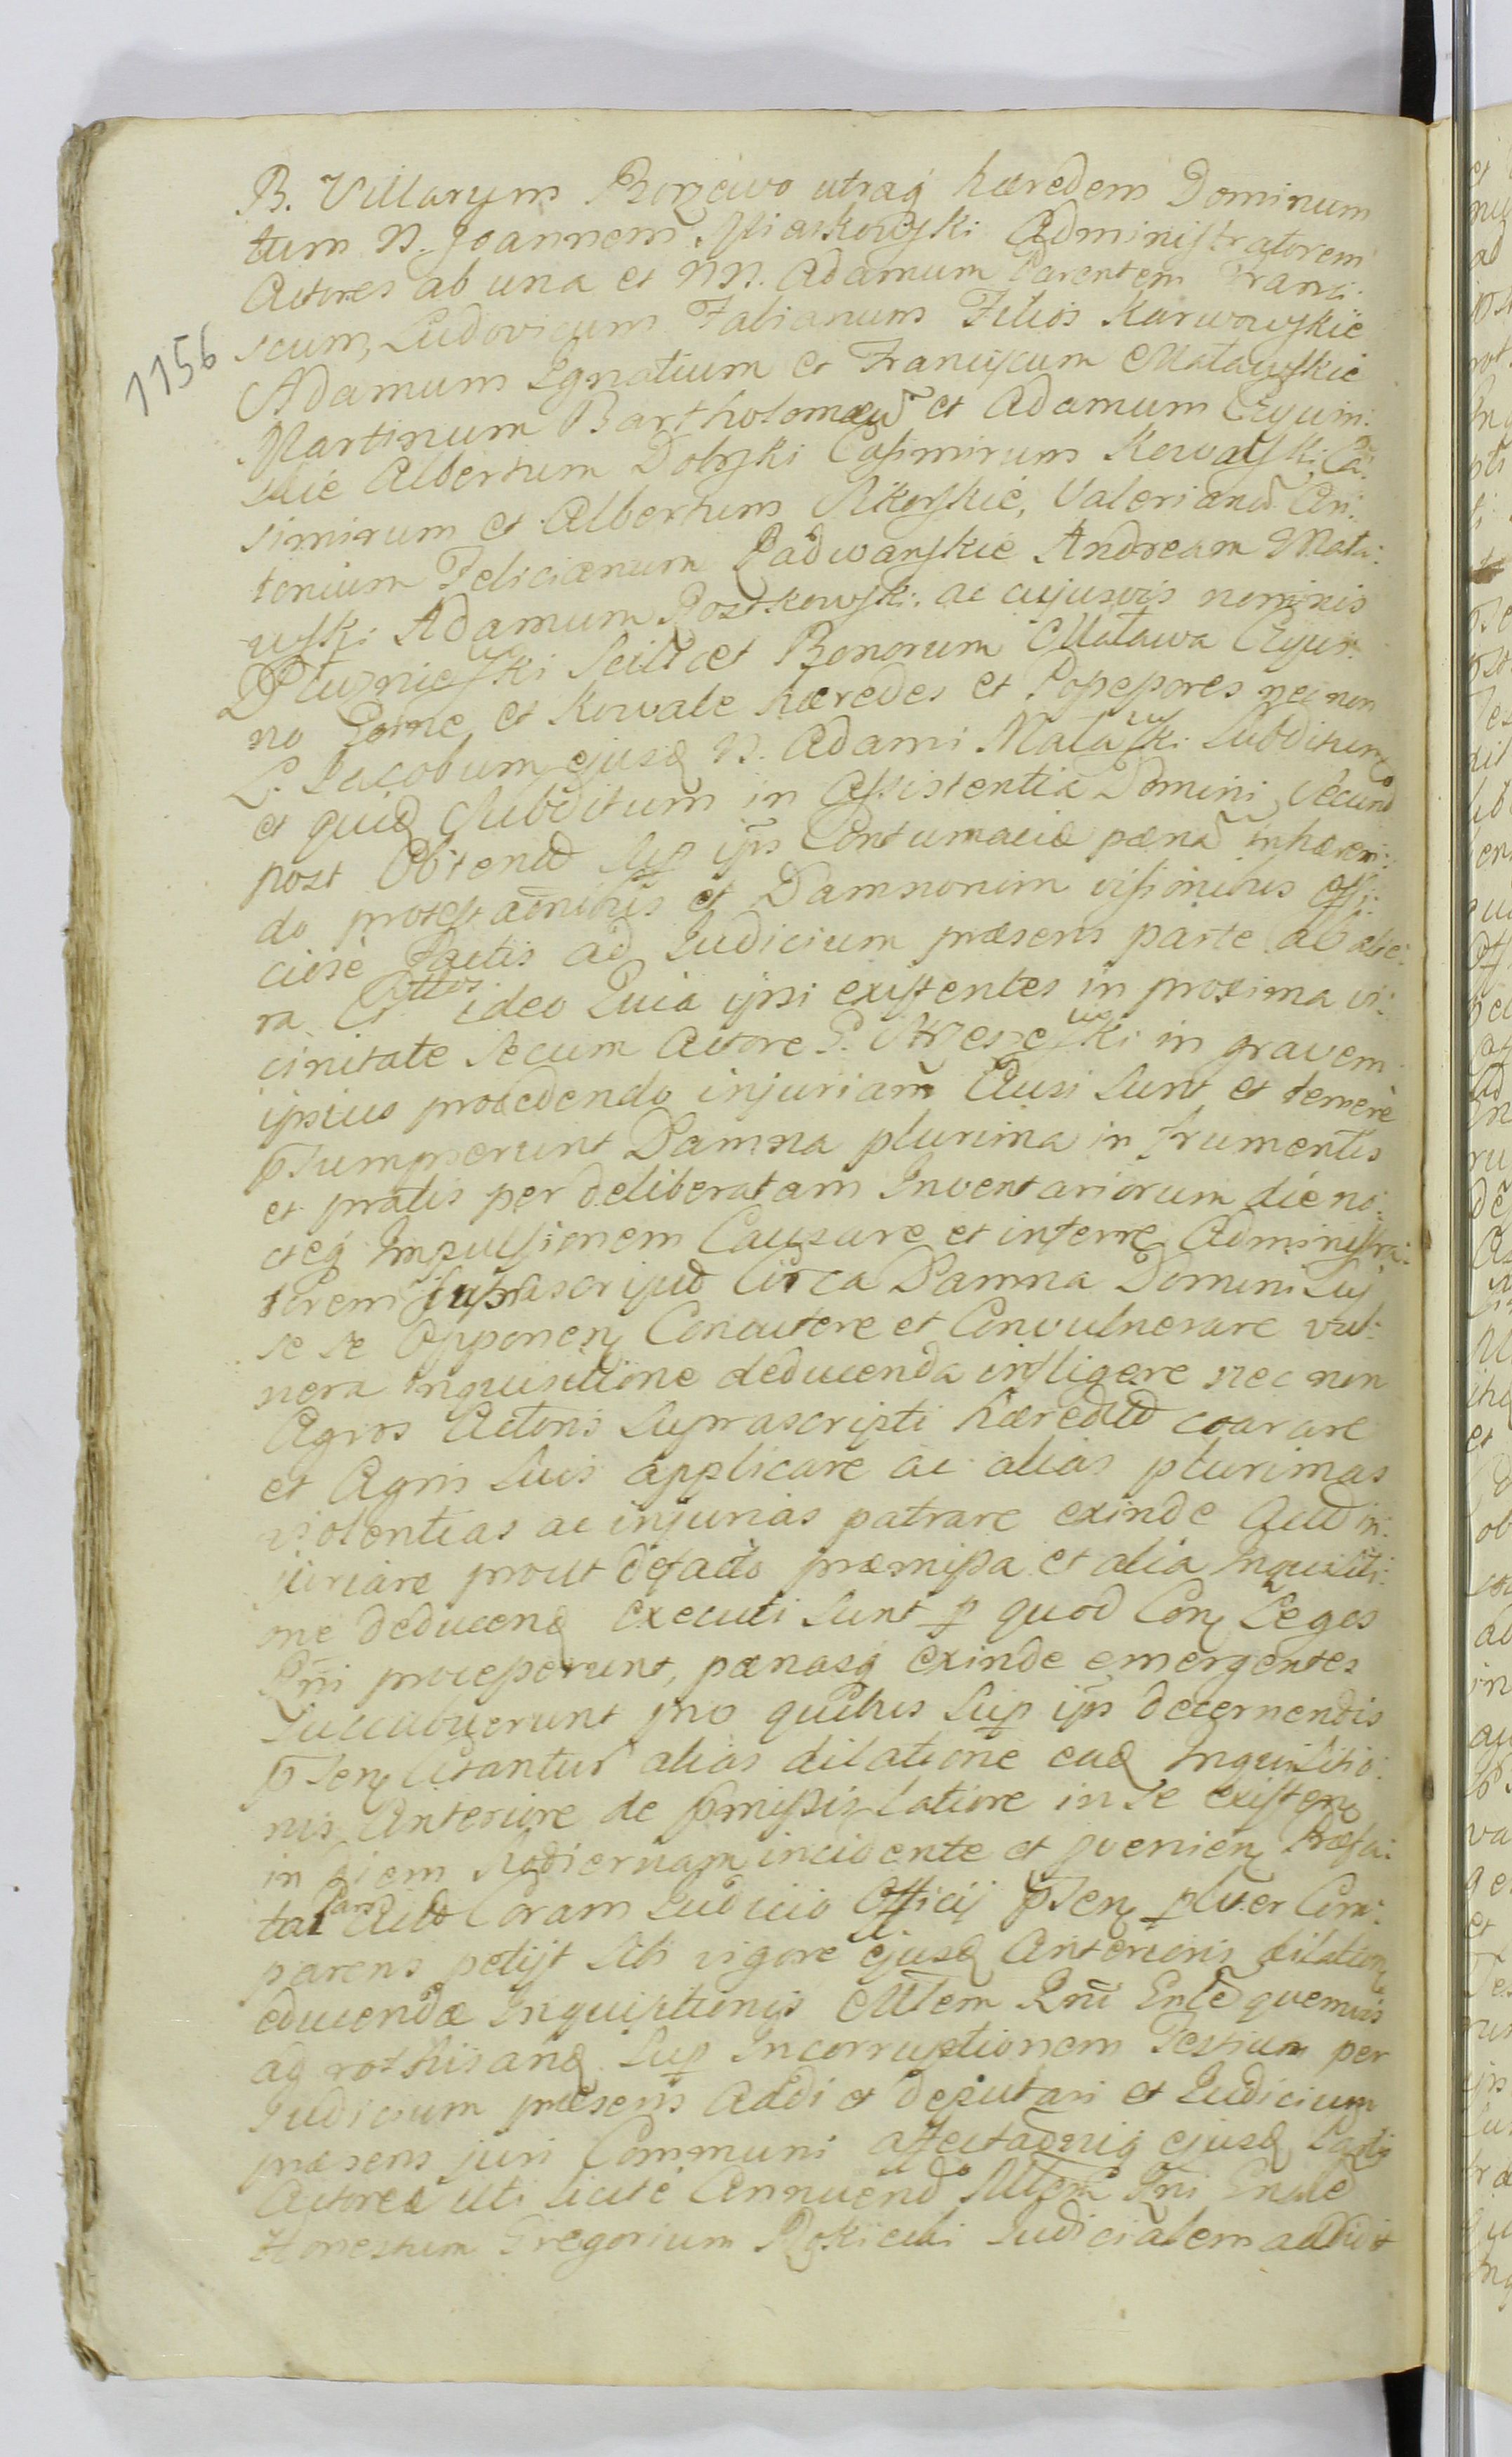 B. Villarym Borzewo utraq hæredem Dominum
tum N. Joannem Miaskowski Administratorem
Actores ab una et NN. Adamum Parentem Franci:
scum, Ludovicum Fabianum Filios Karwowskie
1156
Adamum Ignatium et Franciscum Matawskie
Martinum Bartholomæu et Adamum Czyuin:
skie Albertum Dolyski Casimirum Kowalski Ca:
simirum et Albertum Sikorskie, Valerianu An:
tonium Felicianum Padwanskie Andream Mata:
wski Adamum Rostkowski ac cujusvis nominis
Dluzniewski Scilicet Bonorum Matawa Czyur:
no Gorne et Kowale hæredes et Possessores nec non
L. Jacobum ejusq N. Adami Matawski Subditum
et quidq Subditum in Assistentia Domini, Secund
post Obtent Sup ijs Contumaciæ pæna inhæren:
do protestaonibus et Damnorum visionibus offi:
ciose Factis ad Judicium præsens parte ab alte:
ra Cittos ideo Quia ipsi existentes in proxima vi:
cinitate secum Actore P. Strzeszewski in gravem
ipsius procedendo injuriam Ausi Sunt et temere
psumpserunt Damna plurima in frumentis
et pratis per deliberatam Inventariorum die no:
cteq Impulsionem Causare et inferre Administra:
torem suprascript Circa Damna Domini Suj
se se Opponen Concutere et Convulnerare vul:
nera Inquisitione deducenda infligere nec non
Agros Actoris Suprascripti hæredit coarare
et Agris Suis applicare ac alias plurimas
violentias ac injurias patrare exinde Actd in:
juriare prout defacto præmissa et alia Inquisiti:
one deducenq Executi Sunt p quod Con Leges
Rni processerunt, pænasq exinde emergentes
Succubuerunt pro quibus Sup ijs decernendis
psen Citantur alias dilatione eadq Inquisitio:
nis Anteriore de pmissis latiore in Se existen
in diem hodiernam incidente et pvenien Præfa:
ta Pars Acto Coram Judicio Officij psen pliter Com:
parens petijt Sibi vigore ejusq Anterioris dilation
educendæ Inquisitionis Mtlem Rni Gnle quemvis
ad rothisanq Sup Incorruptionem Testium per
Judicium præsens Addi et deputari et Judicium
præsens juri Communi affectaoniq ejusq Partis
Actoreæ uti licite Annuend Mtlem Rni Gnale
Honestum Gregorium Rokicki Judicialem addidit